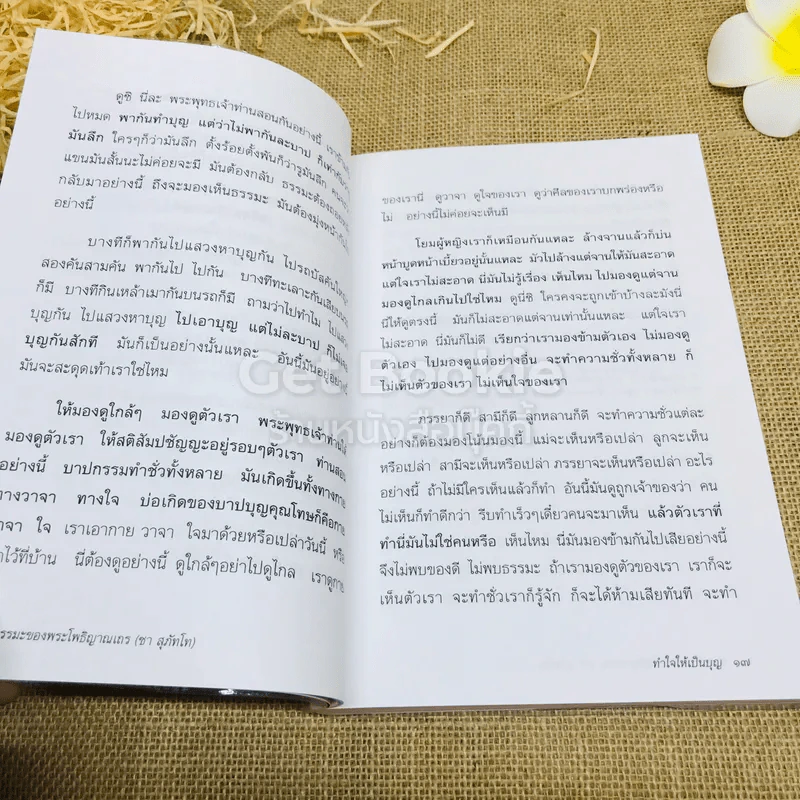 ดูซิ นี่ละ พระพุทธเจ้าท่านสอนกันอย่างนี้
ไปหมด พากันทำบุญ แต่ว่าไม่พากันละบาป
มันลึก ใครๆก็ว่ามันลึก ตั้งร้อยตั้งพันก็ว่ารูมันลึก
แขนมันสั้นนะไม่ค่อยจะมี มันต้องกลับ
กลับมาอย่างนี้ ถึงจะมองเห็นธรรมะ
อย่างนี้
บางทีก็พากันไปแสวงหาบุญกัน
สองคันสามคัน พากันไป ไปกัน บางทีทะเลาะกันเสียบน
ก็มี บางทีกินเหล้าเมากันบนรถก็มี ถามว่าไปทำไม
บุญกัน ไปแสวงหาบุญ ไปเอาบุญ แต่ไม่ละบาป
บุญกันสักที มันก็เป็นอย่างนั้นแหละ
มันจะสะดุดเท้าเราใช่ไหม
ให้มองดูใกล้ๆ มองดูตัวเรา พระพุทธเจ้าท่านให้
มองดูตัวเรา ให้สติสัมปชัญญะอยู่รอบๆตัวเรา ท่านสอน
อย่างนี้ บาปกรรมทำชั่วทั้งหลาย มันเกิดขึ้นทั้งทางกาย
ทางวาจา ทางใจ บ่อเกิดของบาปบุญคุณโทษก็คือกาย
วาจา ใจ เราเอากาย วาจา ใจมาด้วยหรือเปล่าวันนี้ หรือ
ไว้ที่บ้าน นี่ต้องดูอย่างนี้ ดูใกล้ๆอย่าไปดูไกล เราดูกาย
ธรรมะของพระโพธิญาณเถร (ชา สุภัทโท)
ของเรานี่ ดูวาจา ดูใจของเรา ดูว่าศีลของเราบกพร่องหรือ
ไม่ อย่างนี้ไม่ค่อยจะเห็นมี
โยมผู้หญิงเราก็เหมือนกันแหละ ล้างจานแล้วก็บ่น
หน้าบูดหน้าเบี้ยวอยู่นั้นแหละ มัวไปล้างแต่จานให้มันสะอาด
แต่ใจเราไม่สะอาด นี่มันไม่รู้เรื่อง เห็นไหม ไปมองดูแต่จาน
มองดูไกลเกินไปใช่ไหม ดูนี่ซิ ใครคงจะถูกเข้าบ้างละมังนี่
นี่ให้ดูตรงนี้ มันก็ไม่สะอาดแต่จานเท่านั้นแหละ แต่ใจเรา
ไม่สะอาด นี่มันก็ไม่ดี เรียกว่าเรามองข้ามตัวเอง ไม่มองดู
ตัวเอง ไปมองดูแต่อย่างอื่น จะทำความชั่วทั้งหลาย ก็
ไม่เห็นตัวของเรา ไม่เห็นใจของเรา
ภรรยาก็ดี สามีก็ดี ลูกหลานก็ดี จะทำความชั่วแต่ละ
อย่างก็ต้องมองโน้นมองนี้ แม่จะเห็นหรือเปล่า ลูกจะเห็น
หรือเปล่า สามีจะเห็นหรือเปล่า ภรรยาจะเห็นหรือเปล่า อะไร
อย่างนี้ ถ้าไม่มีใครเห็นแล้วก็ทำ อันนี้มันดูถูกเจ้าของว่า คน
ไม่เห็นก็ทำดีกว่า รีบทำเร็วๆเดี๋ยวคนจะมาเห็น แล้วตัวเราที่
ทำนี่มันไม่ใช่คนหรือ เห็นไหม นี่มันมองข้ามกันไปเสียอย่างนี้
จึงไม่พบของดี ไม่พบธรรมะ ถ้าเรามองดูตัวของเรา เราก็จะ
เห็นตัวเรา จะทำชั่วเราก็รู้จัก ก็จะได้ห้ามเสียทันที จะทำ
ทำใจให้เป็นบุญ ๑๗
Get Bookie
ร้านหนังสือบุ๊คกี้